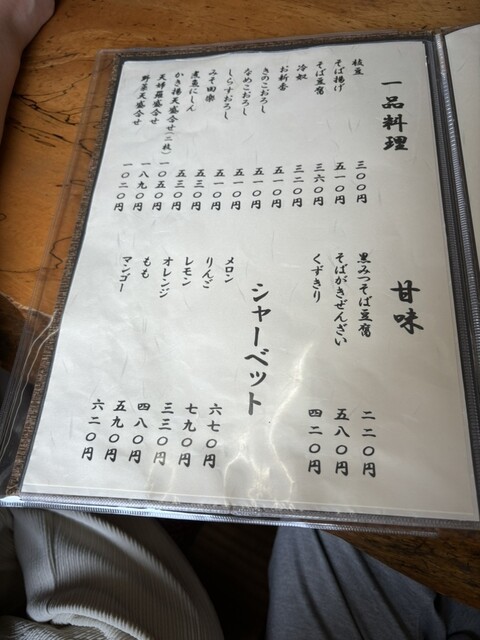 一品料理
枝豆 三〇〇円
そば揚げ 五一〇円
そば豆腐 三六〇円
冷奴 三二〇円
お新香 五一〇円
きのこおろし 五一〇円
なめこおろし 五一〇円
しらすおろし 五一〇円
みそ田楽 五三〇円
にしん 五三〇円
かき揚天盛合せ(二枚) 一〇五〇円
天婦羅盛合せ 一八九〇円
野菜天盛合せ 一〇二〇円
甘味
黒みつそば豆腐 二二〇円
そばがきぜんざい 五八〇円
くずきり 四二〇円
シャーベット
メロン 六七〇円
りんご 七九〇円
レモン 三三〇円
オレンジ 四八〇円
もも 五九〇円
マンゴー 六二〇円